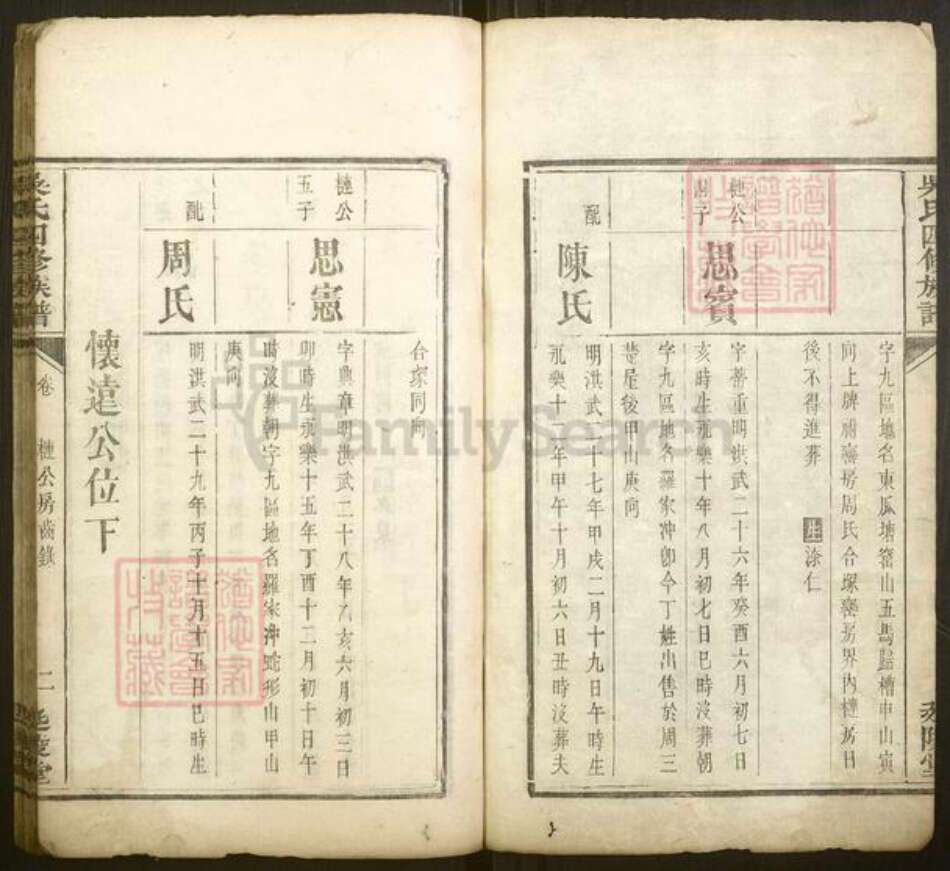 吳氏四修族譜
字九區地名東瓜塘窩山五馬歸槽申山寅
向上牌祔塟房周氏合塚塋房界內槤房日
後不得進葬 生涂仁
槤公
四子
思賓
字蕃重明洪武二十六年癸酉六月初七日
亥時生永樂十年八月初七日巳時沒葬朝
字九區地名羅家冲卽今丁姓出售於周三
荁屋後甲山庚向
配
陳氏
明洪武二十七年甲戌二月十九日午時生
永樂十二年甲午十月初六日丑時沒葬夫
合塚同向
槤公
五子
思憲
字典章明洪武二十八年乙亥六月初三日
卯時生永樂十五年丁酉十二月初十日午
時沒葬朝字九區地名羅家冲蛇形山甲山
庚向
配
周氏
明洪武二十九年丙子十月十五日巳時生
懷遠公位下
吳氏四修族譜
卷
槤公房齒錄
二
延陵堂
FamilySearch